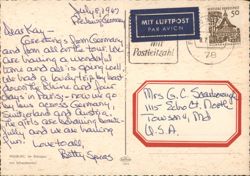 July 8, 1967
Dear Kay -
Greetings from Germany
and from all on the tour. We
are having a wonderful
time and all is going well.
We had a lovely trip by boat
down the Rhine and four
days in Paris - now we go
by bus across Germany,
Switzerland and Austria.
The girls are behaving beauti-
fully and we are having
fun!
Love to all,
Betty
MIT LUFTPOST
PAR AVION
mit
Postleitzahl
50
78
Mrs G. C.
1115
Towson, Md
U.S.A.